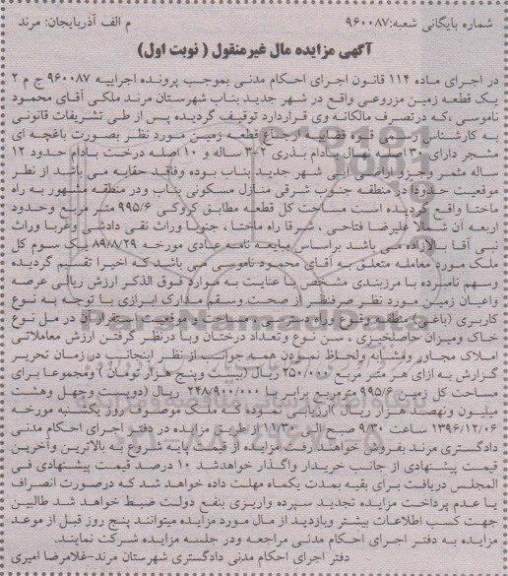 شماره بایگانی شعبه:۹۶۰۰۸۷ م الف آذربایجان: مرند
آگهی مزایده مال غیرمنقول ( نوبت اول)
در اجرای ماده ۱۱۴ قانون اجرای احکام مدنی بموجب پرونده اجراییه ۹۶۰۰۸۷ ج م ۲
یک قطعه زمین مزروعی واقع در شهر جدید بناب شهرستان مرند ملکی آقای محمود
ناموسی ،که درتصرف مالکانه وی قراردارد توقیف گردیده پس از طی تشریفات قانونی
به کارشناس رسمی قوه قضاییه اوضاع قطعه زمین مورد نظر بصورت باغچه ای
مشجر دارای ۱۳ اصله نهال بادام بذری ۲-۳ ساله و ۱۰ اصله درخت بادام حدود ۱۲
ساله مثمر وجزو اراضی شهر جدید بناب بوده وفاقد حقابه می باشد از نظر
موقعیت حدودا در منطقه جنوب شرقی منازل مسکونی بناب ودر منطقه مشهور به راه
ماختا واقع گردیده است مساحت کل قطعه مطابق کروکی ۹۹۵/۶ متر مربع وحدود
اربعه آن شمالا علیرضا فتاحی ، شرقا راه ماختا ، جنوبا وراث نقی دادشی وغربا وراث
نبی آقا بالازاده می باشد براساس مبایعه نامه عادی مورخه ۸۹/۸/۲۹ یک سوم کل
ملک مورد معامله متعلق به آقای محمود ناموسی می باشد که اخیرا تقسیم گردیده
وسهم نامبرده با مرزبندی مشخص با عنایت به موارد فوق الذکر ارزش ریالی عرصه
واعیان زمین مورد نظر صرفنظر از صحت وسقم مدارک ابرازی با توجه به نوع
کاربری (باغی) منطقه موقعیت استقرار آن در مل نوع
خاک ومیزان حاصلخیزی ، سن نوع وتعداد درختان وبا درنظر گرفتن ارزش معاملاتی
املاک مجاور ومشابه ولحاظ نمودن همه جوانب از نظر اینجانب در زمان تحریر
گزارش به ازای هر متر مربع ۲۵۰/۰۰۰ ریال (بیست وپنج هزار تومان ) ومجموعا برای
مساحت کل زمین ۹۹۵/۶ مترمربع برابر با ۲۴۸/۹۰۰/۰۰۰ ریال (دویست وچهل وهشت
میلیون ونهصد هزار ریال )ارزیابی نموده که ملک موصوف روز یکشنبه مورخه
۱۳۹۶/۱۲/۰۶ ساعت ۹/۳۰ صبح الی ۱۱/۳۰ از طریق مزایده در دفتر اجرای احکام مدنی
دادگستری مرند بفروش خواهند رفت مزایده از قیمت پایه شروع به بالاترین وآخرین
قیمت پیشنهادی از جانب خریدار واگذار خواهدشد ۱۰ درصد قیمت پیشنهادی فی
المجلس دریافت برای بقیه بمدت یکماه مهلت داده خواهد شد که درصورت انصراف
یا عدم پرداخت مزایده تجدید سپرده واریزی بنفع دولت ضبط خواهد شد طالبین
جهت کسب اطلاعات بیشتر وبازدید از مال مورد مزایده میتوانند پنج روز قبل از موعد
مزایده به دفتر اجرای احکام مدنی مراجعه ودر جلسه مزایده شرکت نمایند.
دفتر اجرای احکام مدنی دادگستری شهرستان مرند-غلامرضا امیری
ParsNamadData